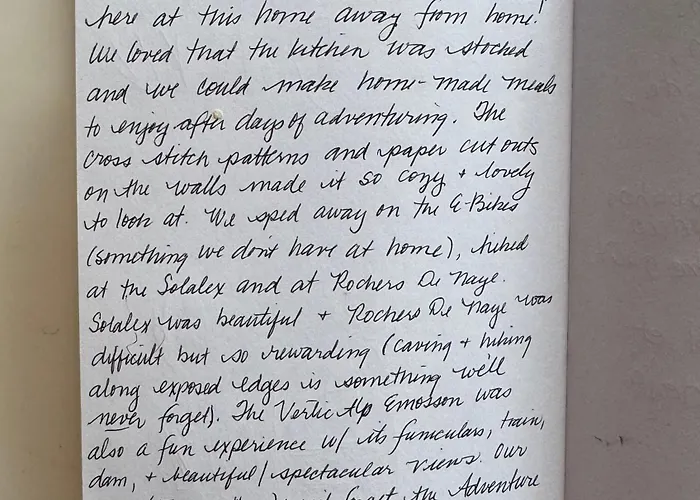 here at this home away from home!
We loved that the kitchen was stocked
and we could make home-made meals
to enjoy after days of adventuring. The
cross stitch patterns and paper cut outs
on the walls made it so cozy + lovely
to look at. We sped away on the E-Bikes
(something we don't have at home), hiked
at the Solalex and at Rochers De Naye.
Solalex was beautiful + Rochers De Naye was
difficult but so rewarding (caving + hiking
along exposed edges is something we'll
never forget). The Vertic Alp Emosson was
also a fun experience w/ its funiculars, train,
dam, + beautiful/spectacular views. Our
the Adventure